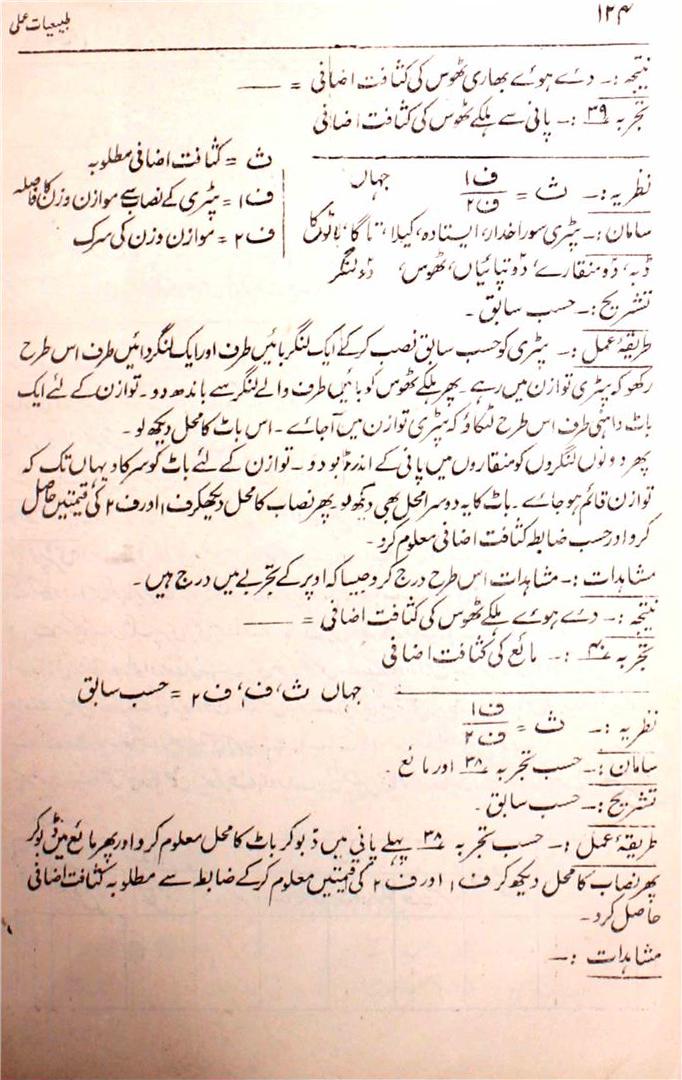 ۱۲۴
طبیعیات عملی
نتیجہ :۔ دئے ہوئے بھاری ٹھوس کی کثافت اضافی = ——
تجربہ ۳۹ :۔ پانی سے ہلکے ٹھوس کی کثافت اضافی
نظریہ :۔ ث = ف۱ / ف۲ جہاں
ث = کثافت اضافی مطلوبہ
ف۱ = پٹری کے نصاب سے موازن وزن کا فاصلہ
ف۲ = موازن وزن کی سرک
سامان :۔ پٹری سوراخدار، ایستادہ، کیلا، تاگا، باٹوں کا
ڈبہ، دو منقارے، دو تپائیاں، ٹھوس، دو لنگر
تشریح :۔ حسب سابق ۔
طریقۂ عمل :۔ پٹری کو حسب سابق نصب کر کے ایک لنگر بائیں طرف اور ایک لنگر دائیں طرف اس طرح
رکھو کہ پٹری توازن میں رہے ۔ پھر ہلکے ٹھوس کو بائیں طرف والے لنگر سے باندھ دو ۔ توازن کے لئے ایک
باٹ داہنی طرف اس طرح لٹکاؤ کہ پٹری توازن میں آجائے ۔ اس باٹ کا محل دیکھ لو ۔
پھر دونوں لنگروں کو منقاروں میں پانی کے اندر ڈبو دو ۔ توازن کے لئے باٹ کو سرکاو یہاں تک کہ
توازن قائم ہو جائے ۔ باٹ کا یہ دوسرا محل بھی دیکھ لو ۔ پھر نصاب کا محل دیکھکر ف۱ اور ف۲ کی قیمتیں حاصل
کرو اور حسب ضابطہ کثافت اضافی معلوم کرو ۔
مشاہدات :۔ مشاہدات اس طرح درج کرو جیسا کہ اوپر کے تجربے میں درج ہیں ۔
نتیجہ :۔ دئے ہوئے ہلکے ٹھوس کی کثافت اضافی = ——
تجربہ ۴۰ :۔ مائع کی کثافت اضافی
نظریہ :۔ ث = ف۱ / ف۲ جہاں ث، ف۱، ف۲ = حسب سابق
سامان :۔ حسب تجربہ ۳۸ اور مائع ۔
تشریح :۔ حسب سابق ۔
طریقۂ عمل :۔ حسب تجربہ ۳۸ پہلے پانی میں ڈبو کر باٹ کا محل معلوم کرو اور پھر مائع میں ڈبو کر
پھر نصاب کا محل دیکھ کر ف۱ اور ف۲ کی قیمتیں معلوم کر کے ضابطہ سے مطلوبہ کثافت اضافی
حاصل کرو ۔
مشاہدات :۔